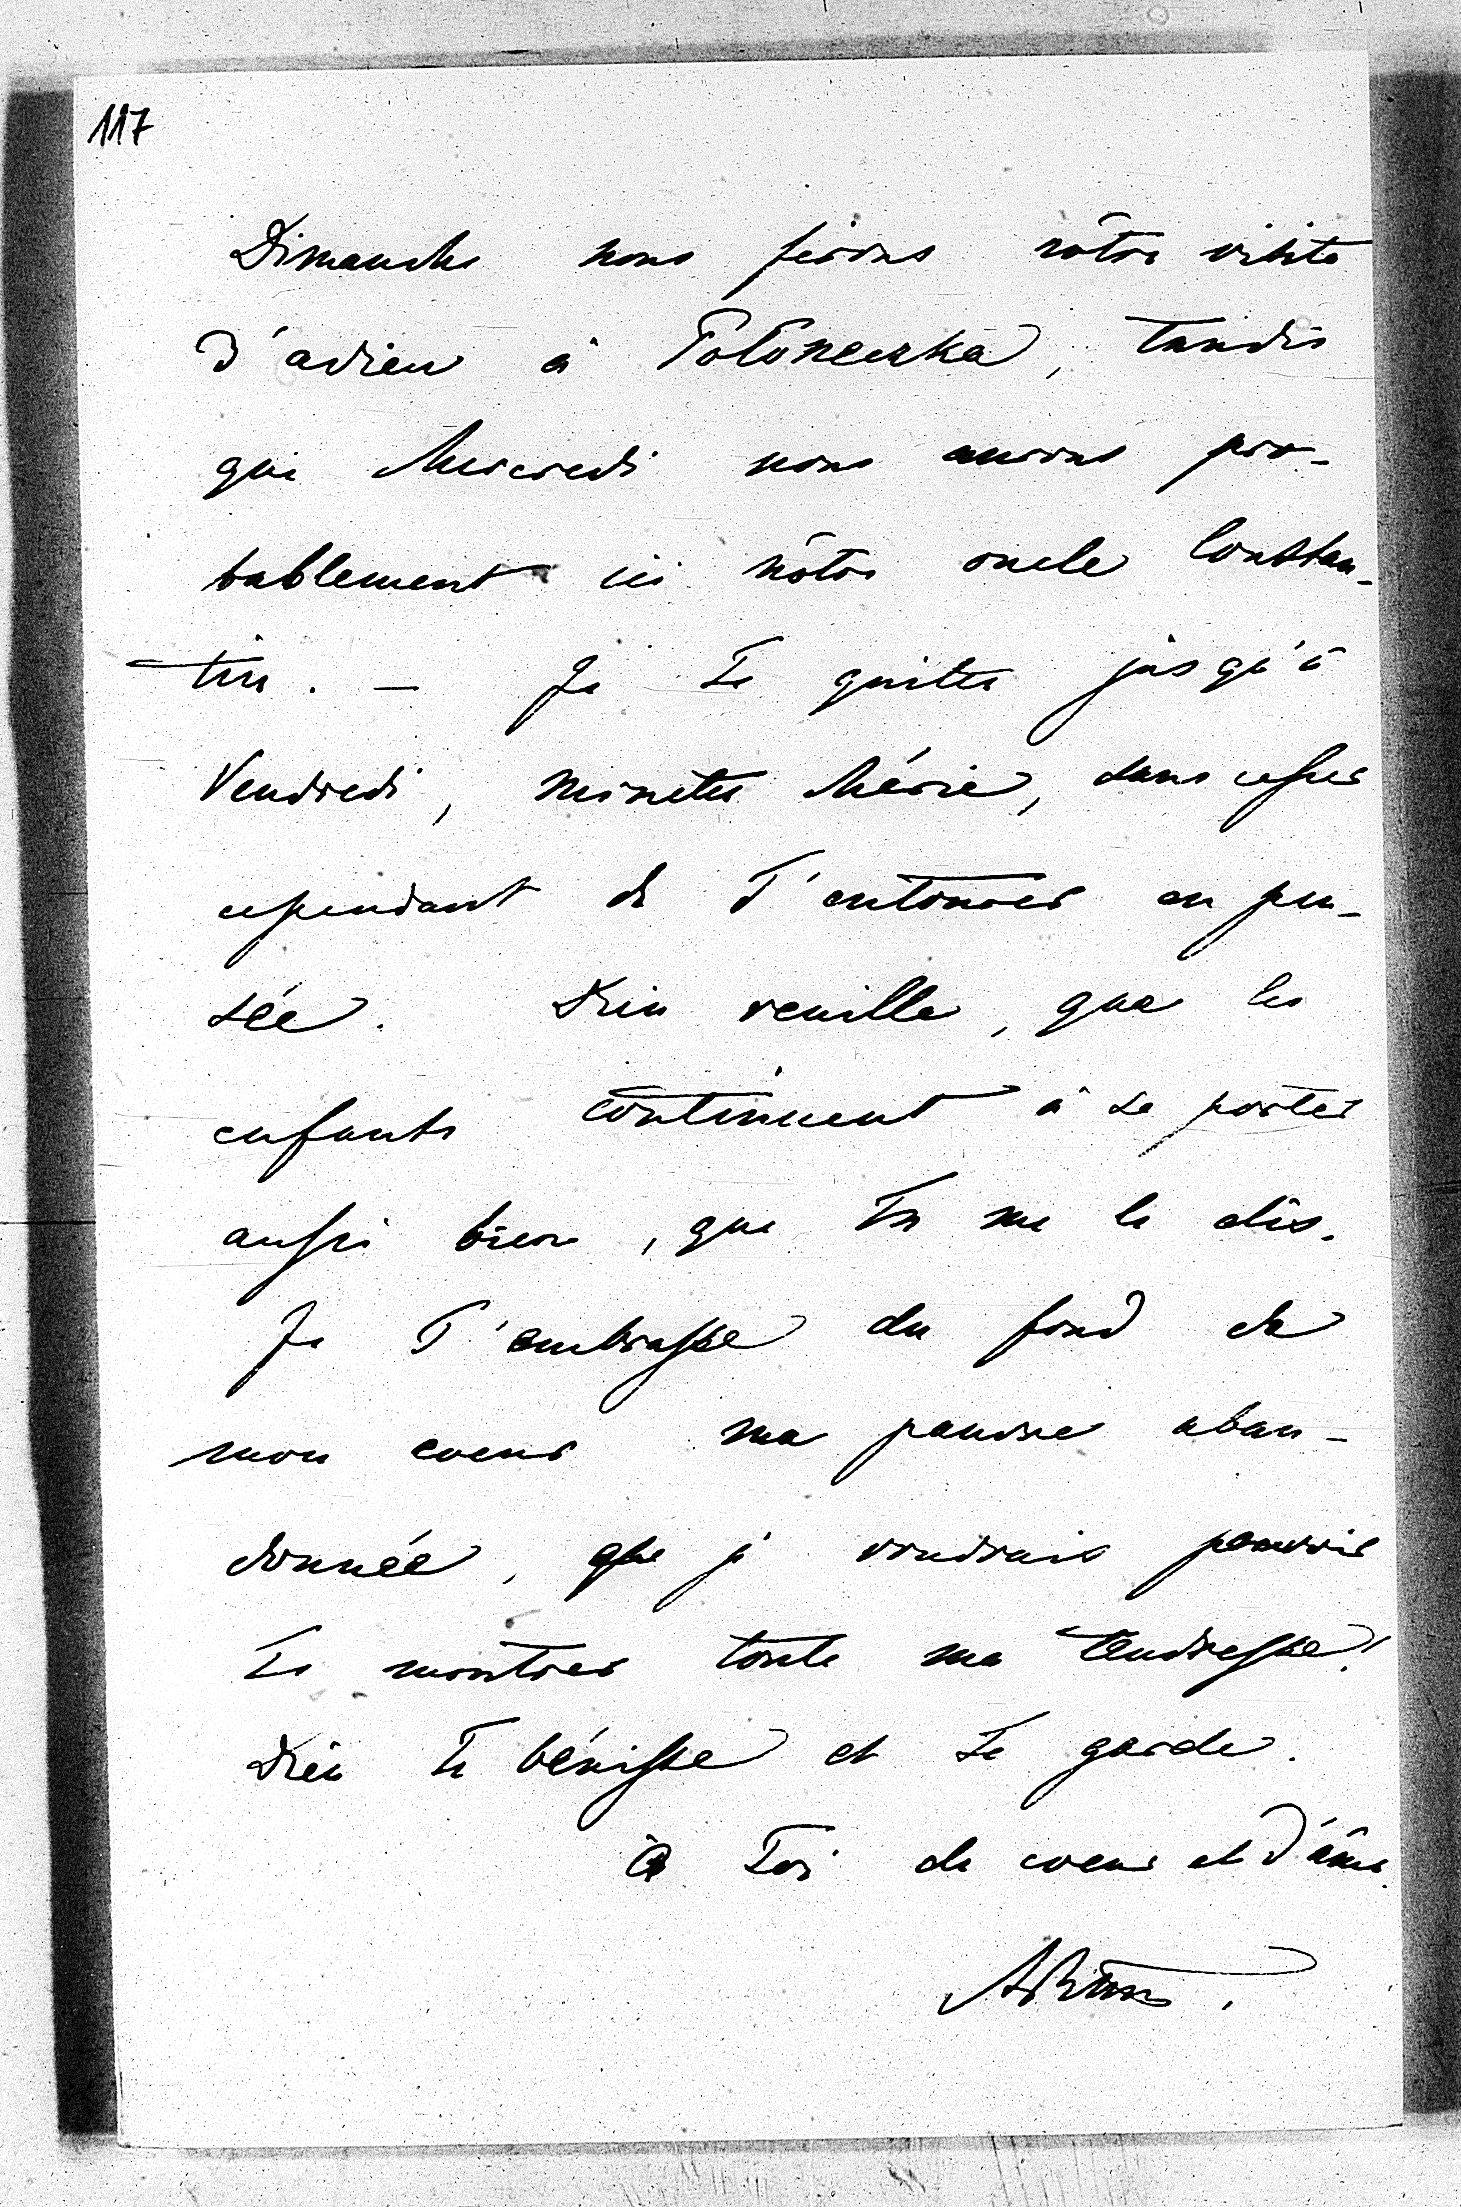 117
Dimanche nous ferons nôtre visite
d'adieu à Toloneczka, tandis
que Mercredi nous aurons pro-
bablement ici nôtre oncle Constan-
tin. — Je Te quitte jusqu'à
Vendredi, minette chérie, sans cesser
cependant de T'entourer en pen-
sée. Dieu veuille, que les
enfants continuent à se porter
aussi bien, que Tu me le dis.
Je T'embrasse du fond de
mon coeur ma pauvre aban-
donnée, que je voudrais pouvoir
Te montrer toute ma tendresse!
Dieu Te bénisse et Te garde.
à Toi de coeur et d'âme.